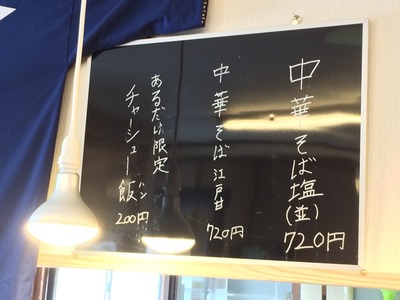 中華そば塩(並)
720円
中華そば江戸甘
720円
あるだけ限定
チャーシュー飯
ハン
200円